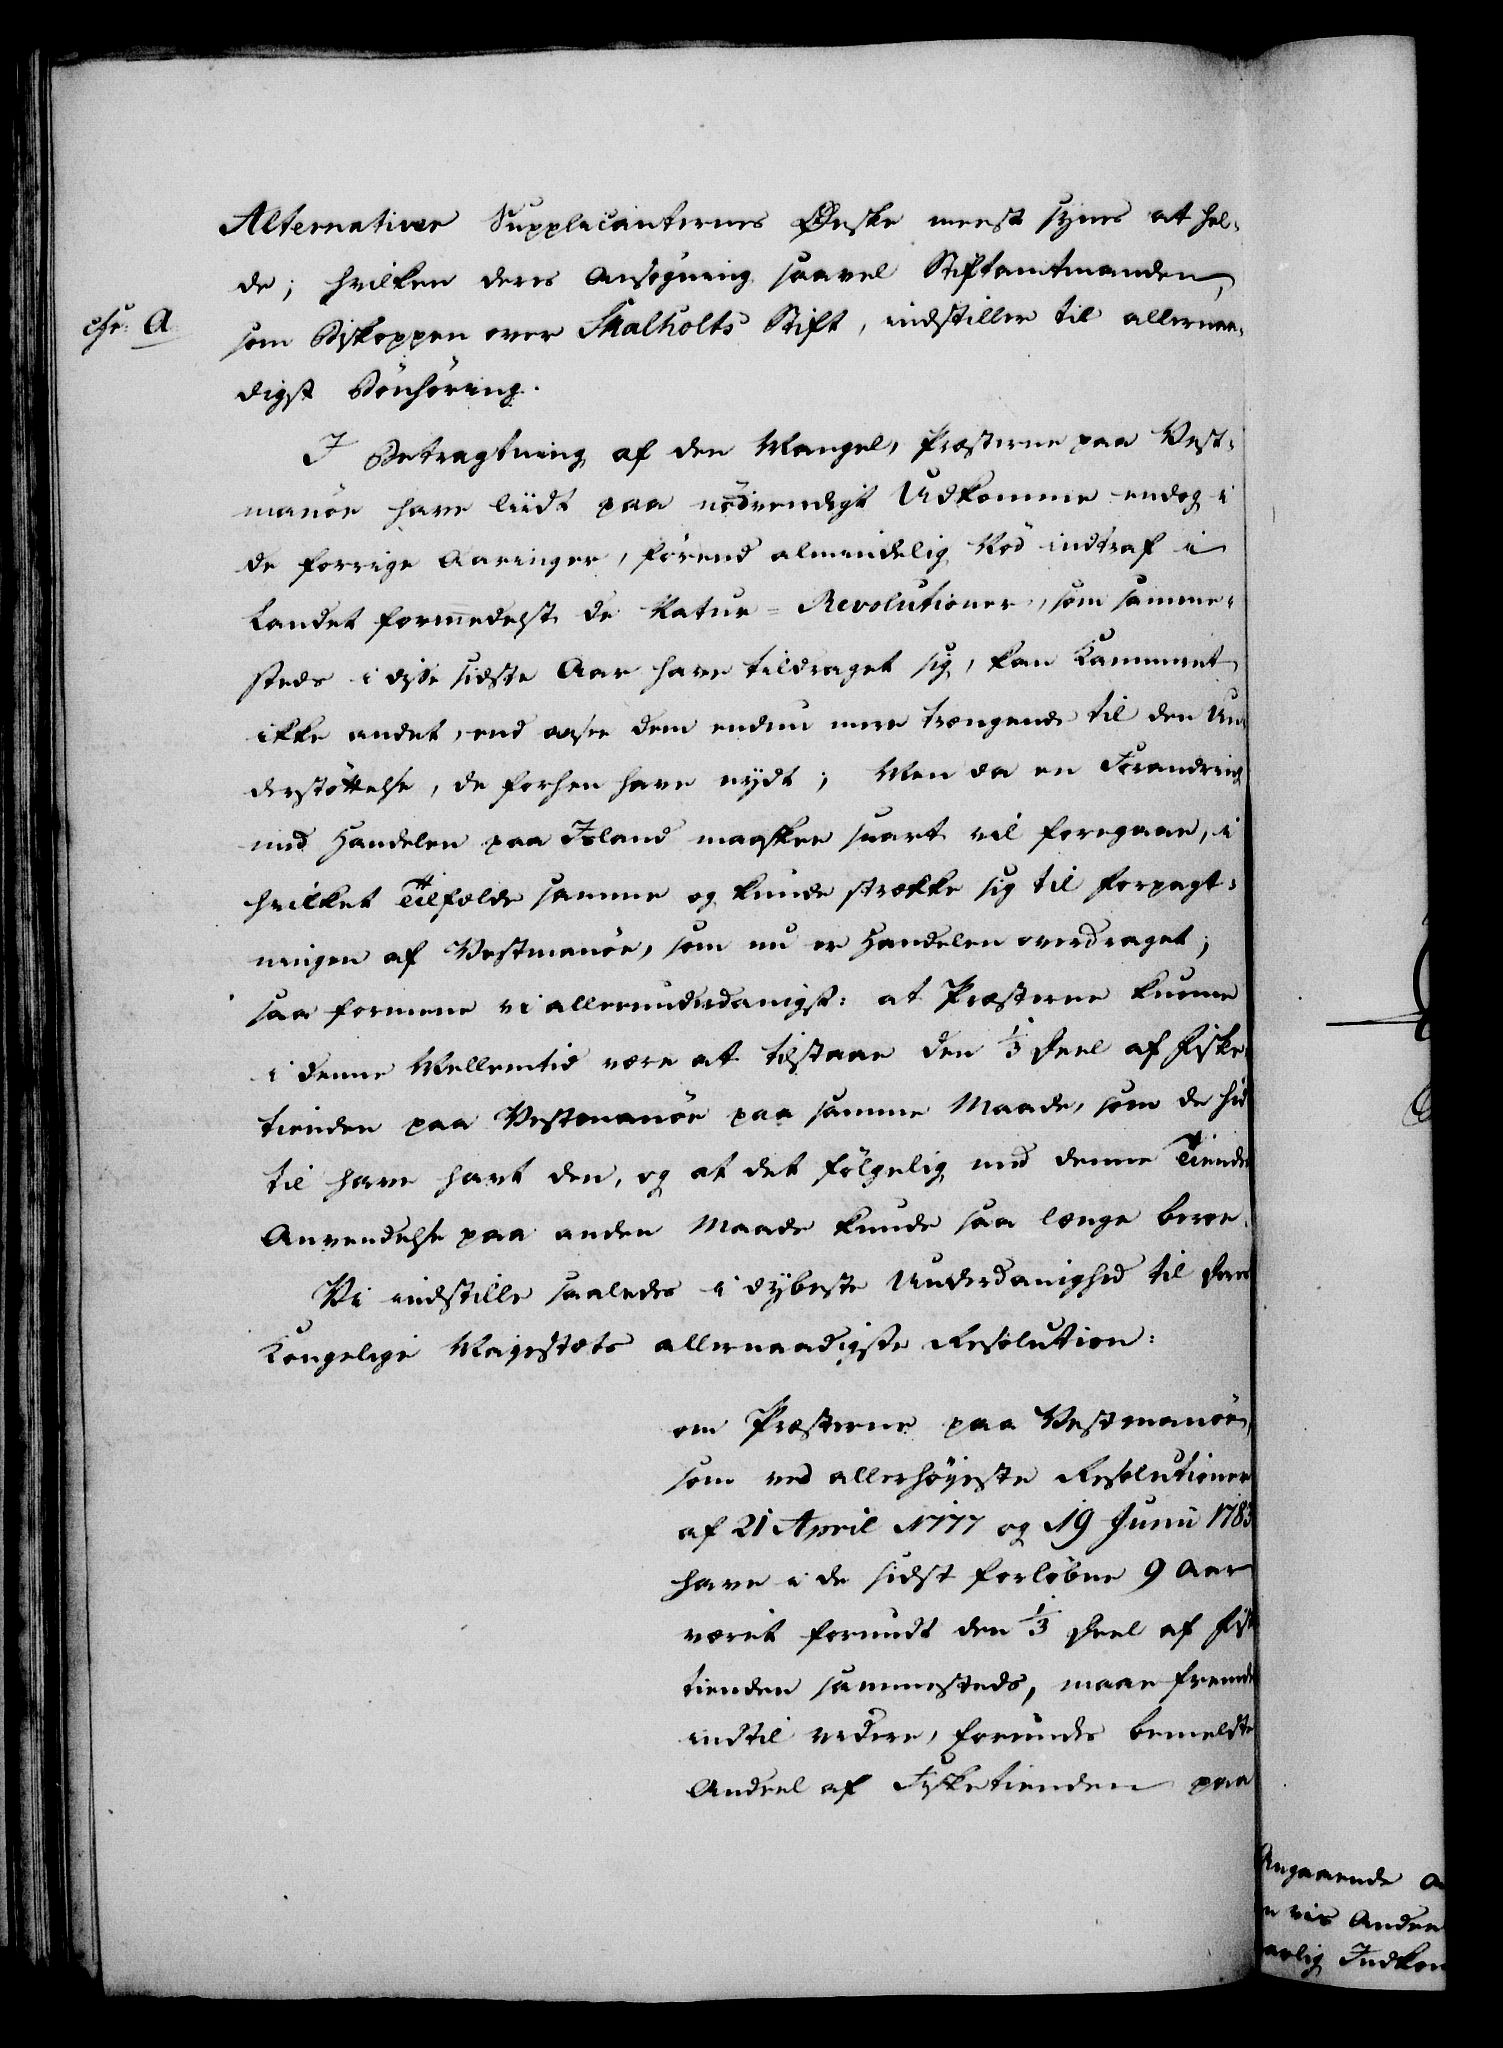 Alternativer Supplicanternes Ønske meest synes at hel-
de; hvilken deres Ansøgning saavel Stiftamtmanden,
cfr. A
som Biskoppen over Skalholts Stift, indstiller til allernaa-
digst Bönhöring.
I Betragtning af den Mangel, Præsterne paa Vest-
manöe have liidt paa nödvendigt Udkomme endog i
de forrige Aaringer, förend almindelig Nöd indtraf i
Landet formedelst de Natur-Revolutioner, som samme-
steds i disse sidste Aar have tildraget sig, kan Kammeret
ikke andet, end ansee dem endnu mere trængende til den Un-
derstöttelse, de forhen have nydt; Men da en Forandring
med Handelen paa Island maaskee snart vil foregaae, i
hvilket Tilfælde samme og kunde strække sig til Forpagt-
ningen af Vestmanöe, som nu er Handelen overdraget;
saa formene vi allerunderdanigst: at Præsterne kunne
i denne Mellemtid være at tilstaae den 1/3 Deel af Fiske-
tienden paa Vestmanöe paa samme Maade, som de hid-
til have havt den, og at det fölgelig med denne Tiendes
Anvendelse paa anden Maade kunde saa længe beroe.
Vi indstille saaledes i dybeste Underdanighed til Deres
Kongelige Majestæts allernaadigste Resolution:
om Præsterne paa Vestmanöe,
som ved allerhöyeste Resolutioner
af 21 April 1777 og 19 Junii 1783
have i de sidst forløbne 9 Aar
været forundt den 1/3 Deel af Fisk
tienden sammesteds, maae fremde
indtil videre, forundes bemeldte
Andeel af Fisketienden paa
Angaaende
vis Andee
aarlig Indkom